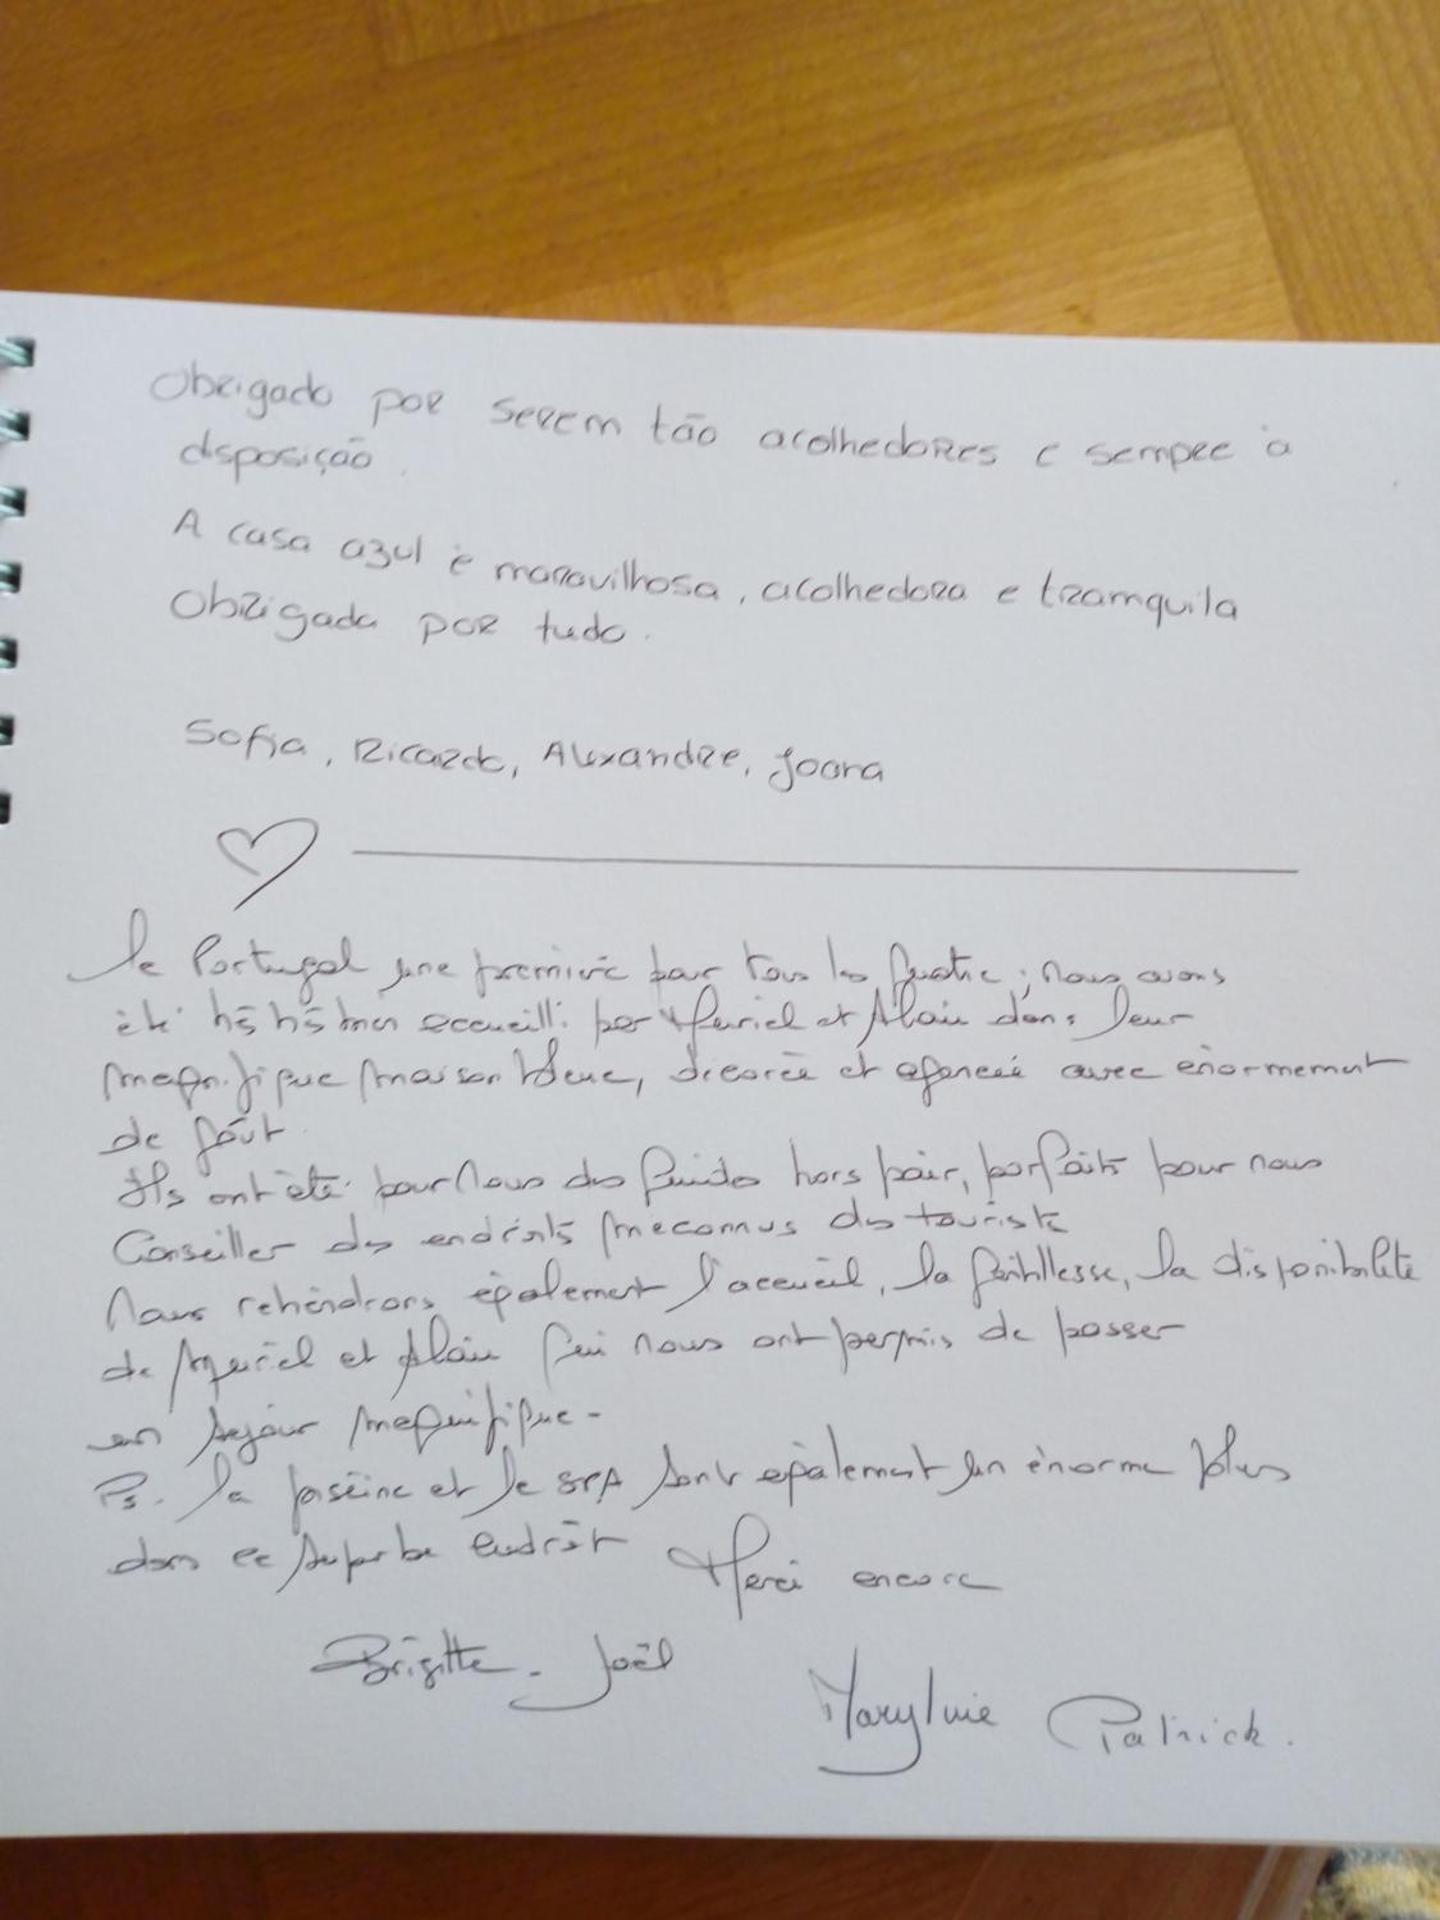 Obrigado por serem tão acolhedores e sempre à
disposição.
A casa azul é maravilhosa, acolhedora e tramquila
Obrigada por tudo.
Sofia, Ricardo, Alexandre, Joana
Le Portugal une première pour tous les quatre ; nous avons
été très très bien accueilli par Muriel et Alain dans leur
magnifique maison bleue, décorée et agencée avec énormement
de goût.
Ils ont été pour nous des guides hors pair, parfaits pour nous
Conseiller des endroits méconnus des touriste
Nous retiendrons également l'accueil, la gentillesse, la disponibilité
de Muriel et Alain qui nous ont permis de passer
un séjour magnifique-
Ps. la piscine et le SPA sont également un énorme plus
dans ce superbe endroit Merci encore
Brigitte - Joël
Marylvie Patrick.